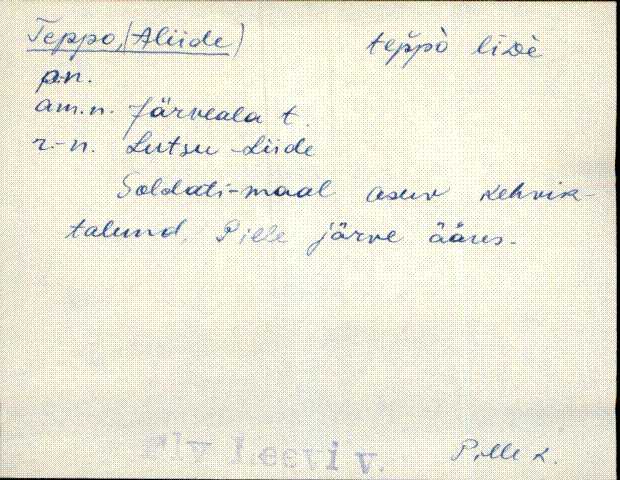 Teppo, (Aliide) teppò līDè
p.n.
am.n. Järveala t.
r.-n. Lutsu Liide
Soldati-maal asuv kehvik-
talund Pille järve ääres.
Plv Leevi v. Pille k.